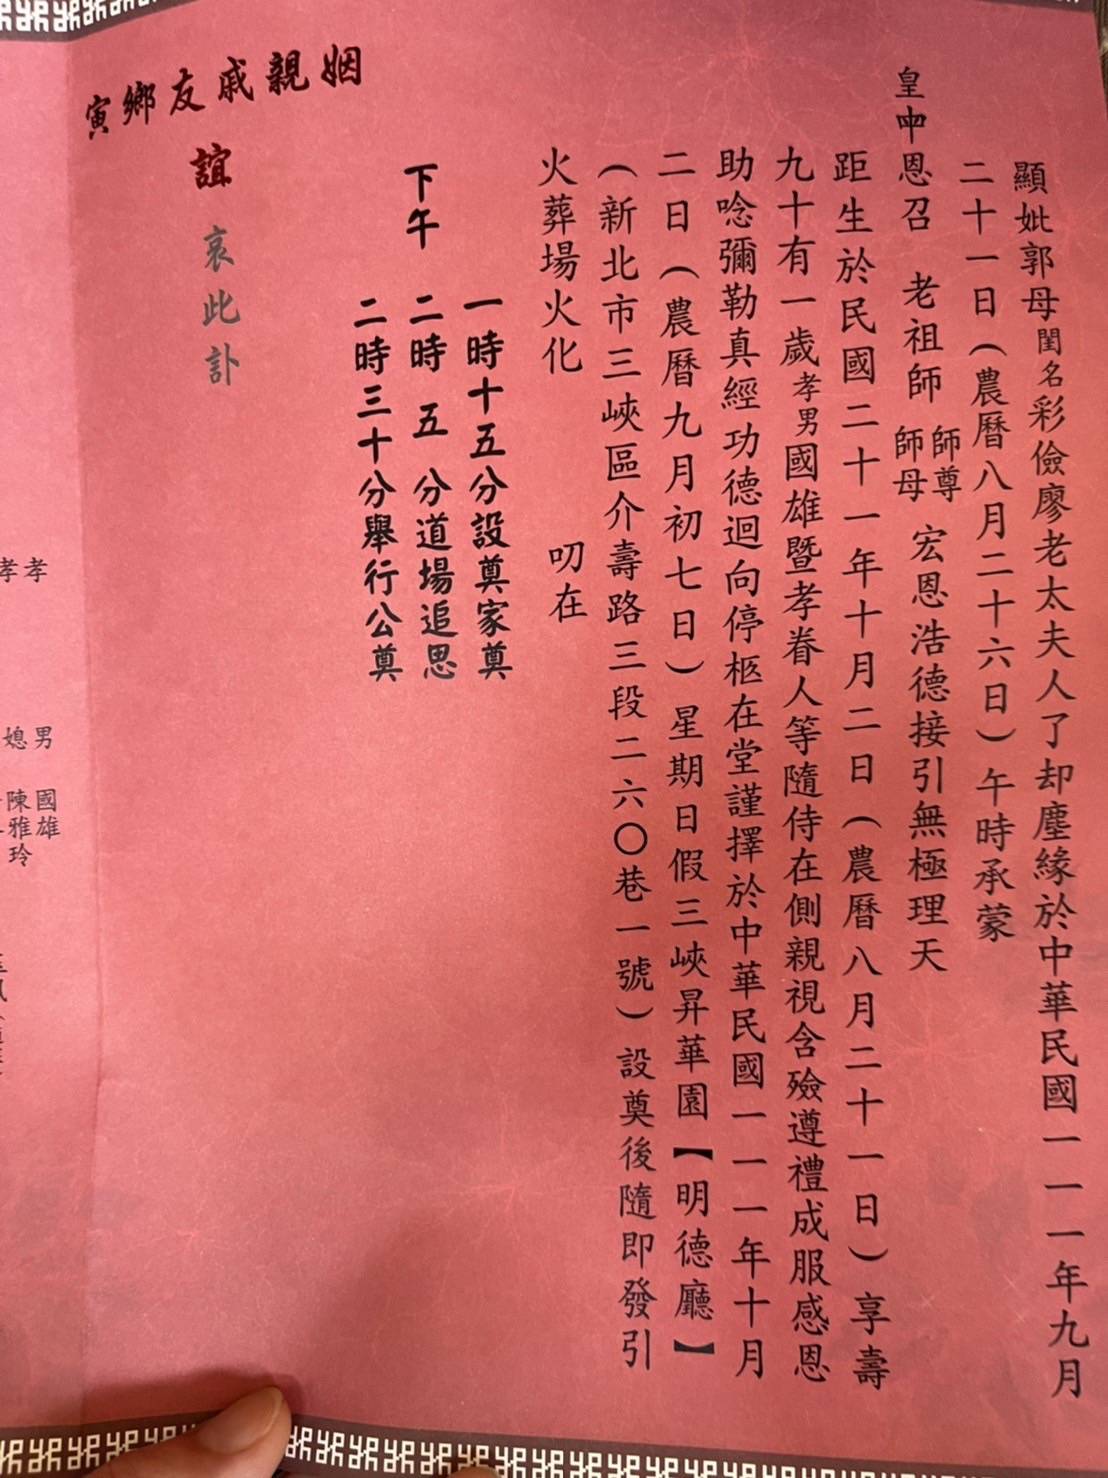 顯妣郭母閨名彩儉廖老太夫人了却塵緣於中華民國一一一年九月
二十一日(農曆八月二十六日)午時承蒙
皇𢆶恩召 老祖師 師尊 師母 宏恩浩德接引無極理天
距生於民國二十一年十月二日(農曆八月二十一日)享壽
九十有一歲孝男國雄暨孝眷人等隨侍在側親視含殮遵禮成服感恩
助唸彌勒真經功德迴向停柩在堂謹擇於中華民國一一一年十月
二日(農曆九月初七日)星期日假三峽昇華園【明德廳】
(新北市三峽區介壽路三段二六〇巷一號)設奠後隨即發引
火葬場火化 叨在
下午
一時十五分設奠家奠
二時 五 分道場追思
二時三十分舉行公奠
姻親戚友鄉寅
誼 哀此訃
孝男 國雄
孝媳 陳雅玲